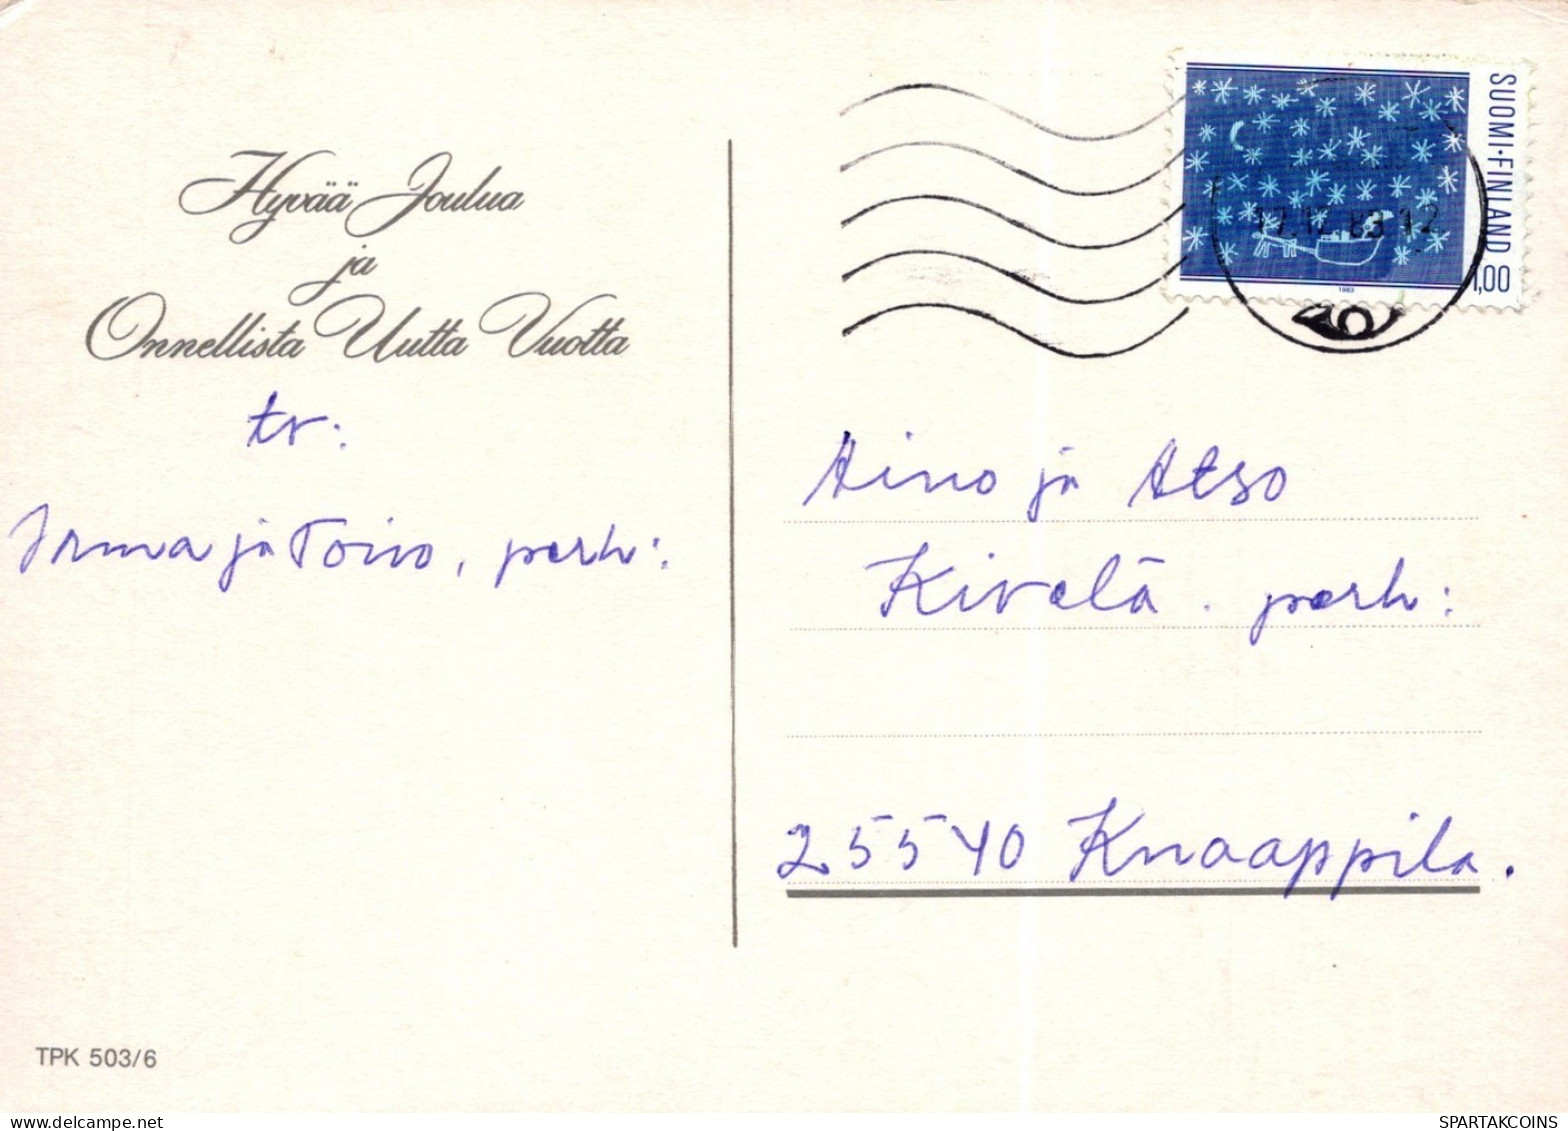 Hyvää Joulua
ja
Onnellista Uutta Vuotta
tv:
Irma ja Toivo, perh:
TPK 503/6
SUOMI·FINLAND
1,00
1983
17.12.83 12
Aino ja Atso
Kivelä. perh:
25540 Knaappila.
SPARTAKCOINS